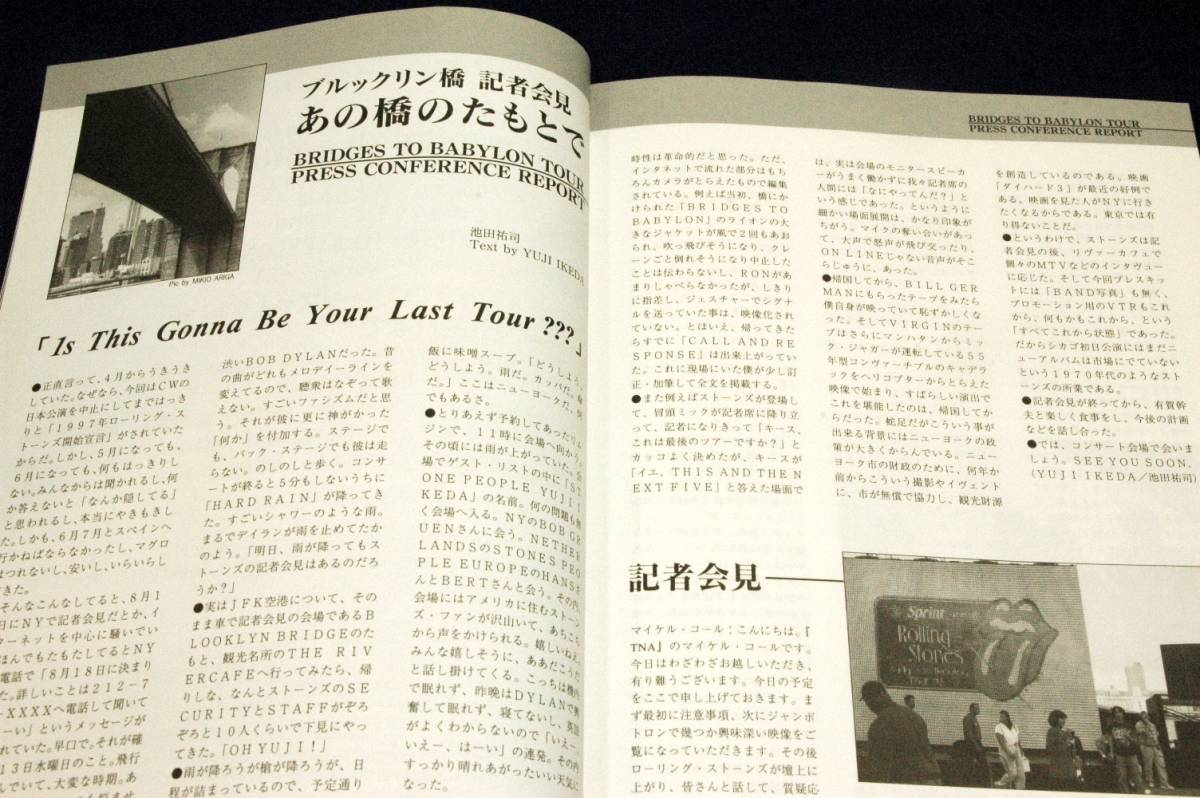 ブルックリン橋 記者会見
あの橋のたもとで
BRIDGES TO BABYLON TOUR
PRESS CONFERENCE REPORT
池田祐司
Text by YUJI IKEDA
Pic by MIKIO ARIGA
「1s This Gonna Be Your Last Tour ???」
●正直言って、4月からうきうき
していた。なぜなら、今回はCWの
日本公演を中止にしてまではっき
りと「1997年ローリング・ス
トーンズ開始宣言」がされていた
からだ。しかし、5月になっても、
6月になっても、何もはっきりし
ない。みんなからは聞かれるし、何
か答えないと「なんか隠してる」
と思われるし、本当にやきもきし
た。しかも、6月7月とスペインへ
行かねばならなかったし、マグロ
はつれないし、安いし、いらいらし
てきた。
そんなこんなしてると、8月1
日にNYで記者会見だとか、イ
ターネットを中心に騒いでい
ほんでもたもたしてるとNY
電話で「8月18日に決まり
た。詳しいことは212-7
-XXXXへ電話して聞いて
ーい」というメッセージが
れていた。早口で。それが確
13日水曜日のこと。飛行
んでいて、大変な時期。あ
渋いBOB DYLANだった。昔
の曲がどれもメロデイーラインを
変えてるので、聴衆はなぞって歌
えない。すごいファシズムだと思
う。それが彼に更に神がかった
「何か」を付加する。ステージで
も、バック・ステージでも彼は走
らない。のしのしと歩く。コンサ
ートが終ると5分もしないうちに
「HARD RAIN」が降ってき
た。すごいシャワーのような雨。
まるでデイランが雨を止めてたか
のよう。「明日、雨が降ってもス
トーンズの記者会見はあるのだろ
うか?」
●実はJFK空港について、その
まま車で記者会見の会場であるB
LOOKLYN BRIDGEのた
もと、観光名所のTHE RIV
ERCAFEへ行ってみたら、帰
りしな、なんとストーンズのSE
CURITYとSTAFFがぞろ
ぞろと10人くらいで下見にやっ
てきた。「OH YUJI!」
●雨が降ろうが槍が降ろうが、日
程が詰まっているので、予定通り
飯に味噌スープ。「どうしよう、
どうしよう。雨だ。カッパだ。傘
だ。」ここはニューヨークだ。何
でもあるさ。
●とりあえず予約してあったリム
ジンで、11時に会場へ向かう。
その頃には雨が上がっていた。会
場でゲスト・リストの中に「ST
ONE PEOPLE YUJI I
KEDA」の名前。何の問題も無
く会場へ入る。NYのBOB GR
UENさんに会う。NETHER
LANDSのSTONES PEO
PLE EUROPEのHANSさ
んとBERTさんと会う。その内、
会場にはアメリカに住むストーン
ズ・ファンが沢山いて、あちこち
から声をかけられる。嬉しいねえ。
みんな嬉しそうに、ああだこうだ
と話し掛けてくる。こっちは機内
で眠れず、昨晩はDYLANで興
奮して眠れず、寝てないし、英語
がよくわからないので「いえー、
いえー、はーい」の連発。その内
すっかり晴れあがったいい天気に
なった。
BRIDGES TO BABYLON TOUR
PRESS CONFERENCE REPORT
時性は革命的だと思った。ただ、
インタネットで流れた部分はもち
ろんカメラがとらえたもので編集
されている。例えば当初、橋にか
けられた「BRIDGES TO
BABYLON」のライオンの大
きなジャケットが風で2回もあお
られ、吹っ飛びそうになり、クレ
ーンごと倒れそうになり中止した
ことは伝わらないし、RONがあ
まりしゃべらなかったが、しきり
に指差し、ジェスチャーでシグナ
ルを送っていた事は、映像化され
ていない。とはいえ、帰ってきた
らすでに「CALL AND RE
SPONSE」は出来上がってい
た。これに現場にいた僕が少し訂
正・加筆して全文を掲載する。
●また例えばストーンズが登場し
て、冒頭ミックが記者席に降り立
って、記者になりきって「キース、
これは最後のツアーですか?」と
カッコよく決めたが、キースが
「イエ、THIS AND THE N
EXT FIVE」と答えた場面で
は、実は会場のモニタースピーカ
ーがうまく働かずに我々記者席の
人間には「なにやってんだ?」と
いう感じであった。というように
細かい場面展開は、かなり印象が
ちがう。マイクの奪い合いがあっ
て、大声で怒声が飛び交ったり、
ON LINEじゃない音声がそこ
らじゅうに、あった。
●帰国してから、BILL GER
MANにもらったテープをみたら
僕自身が映っていて恥ずかしくな
った。そしてVIRGINのテー
プはさらにマンハタンからミッ
ク・ジャガーが運転している55
年型コンヴァーチブルのキャデラ
ックをヘリコプターからとらえた
映像で始まり、すばらしい演出で
これを堪能したのは、帰国してか
らだった。蛇足だがこういう事が
出来る背景にはニューヨークの政
策が大きくからんでいる。ニュー
ヨーク市の財政のために、何年か
前からこういう撮影やイヴェント
に、市が無償で協力し、観光財源
を創造しているのである。映画
「ダイハード3」が最近の好例で
ある、映画を見た人がNYに行き
たくなるからである。東京では有
り得ないことだ。
●というわけで、ストーンズは記
者会見の後、リヴァーカフェで
個々のMTVなどのインタヴュー
に応じた。そして今回プレスキッ
トには「BAND写真」も無く、
プロモーション用のVTRもこれ
から、何もかもこれから、という
「すべてこれから状態」であった。
だからシカゴ初日公演にはまだニ
ューアルバムは市場にでていない
という1970年代のようなスト
ーンズの所業である。
●記者会見が終ってから、有賀幹
夫と楽しく食事をし、今後の計画
などを話し合った。
●では、コンサート会場で会いま
しょう。SEE YOU SOON.
(YUJI IKEDA/池田祐司)
記者会見
マイケル・コール:こんにちは。『
TNA』のマイケル・コールです。
今日はわざわざお越しいただき、
有り難うございます。今日の予定
をここで申し上げておきます。ま
ず最初に注意事項、次にジャンボ
トロンで幾つか興味深い映像をご
覧になっていただきます。その後
ローリング・ストーンズが壇上に
上がり、皆さんと話して、質疑応
Sprint
Rolling
Stones